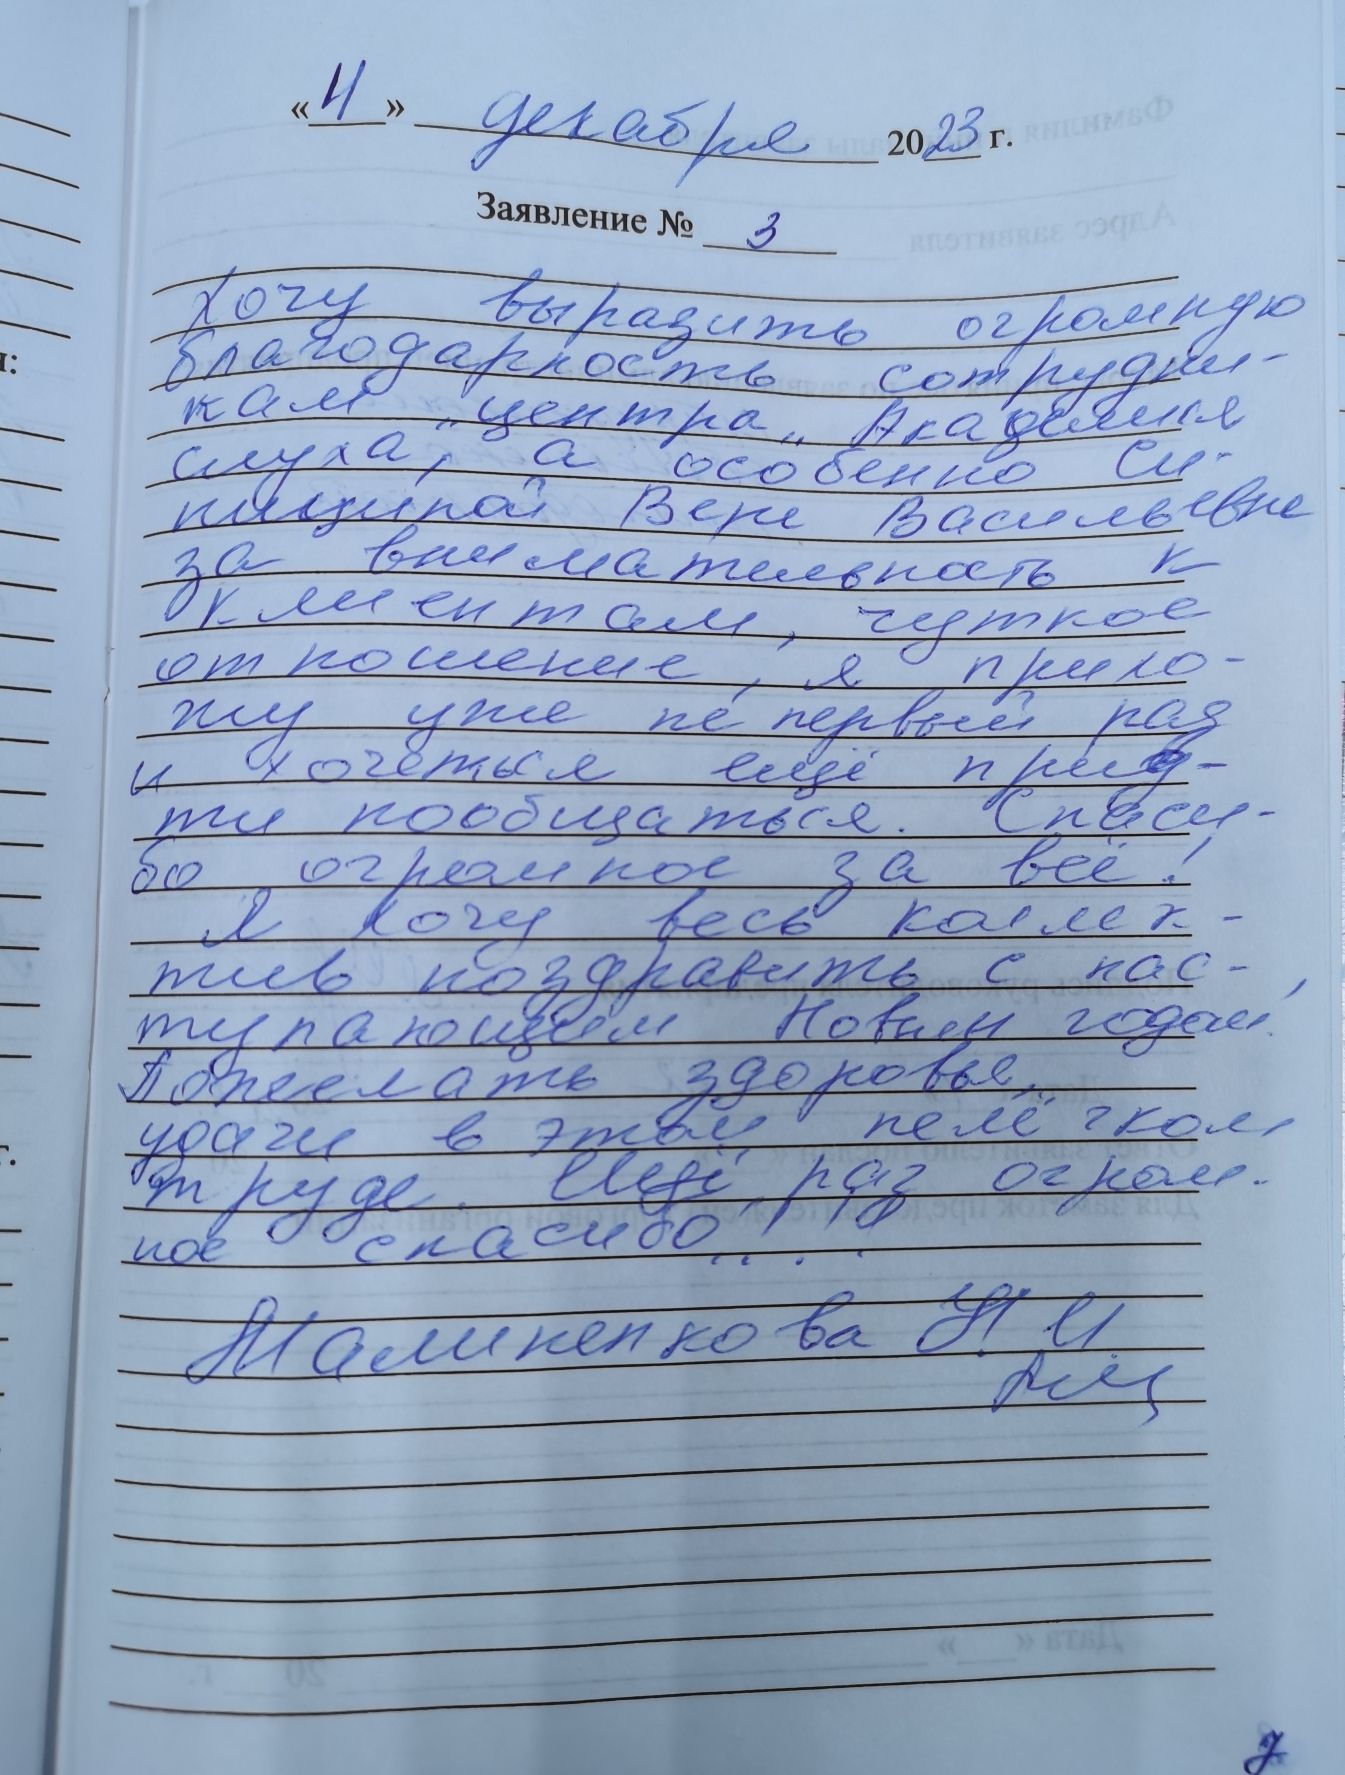 «4» декабря 2023 г.
Заявление № 3
Хочу выразить огромную
благодарность сотрудни-
кам центра „Академия
слуха", а особенно Си-
ницыной Вере Васильевне
за внимательность к
клиентам, чуткое
отношение, я прихо-
жу уже не первый раз
и хочеться ещё прид-
ти пообщаться. Спаси-
бо огромное за всё!
Я хочу весь коллек-
тив поздравить с нас-
тупающим Новым годом,
Пожелать здоровья,
удачи в этом нелёгком
труде. Ещё раз огром-
ное спасибо!!!
Н. И.
7